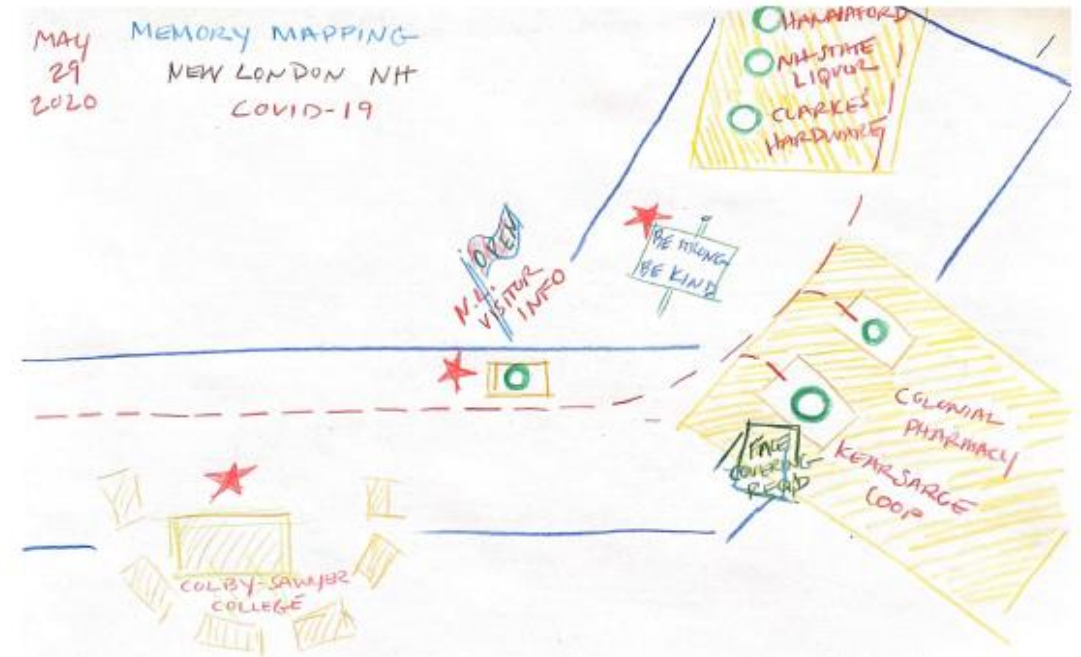 MAY
29
2020
MEMORY MAPPING
NEW LONDON NH
COVID-19
HANNAFORD
NH STATE
LIQUOR
CLARKES'
HARDWARE
OPEN
N.L.
VISITOR
INFO
BE STRONG
BE KIND
COLONIAL
PHARMACY
KEARSARGE
COOP
FACE
COVERING
REQ'D
COLBY-SAWYER
COLLEGE